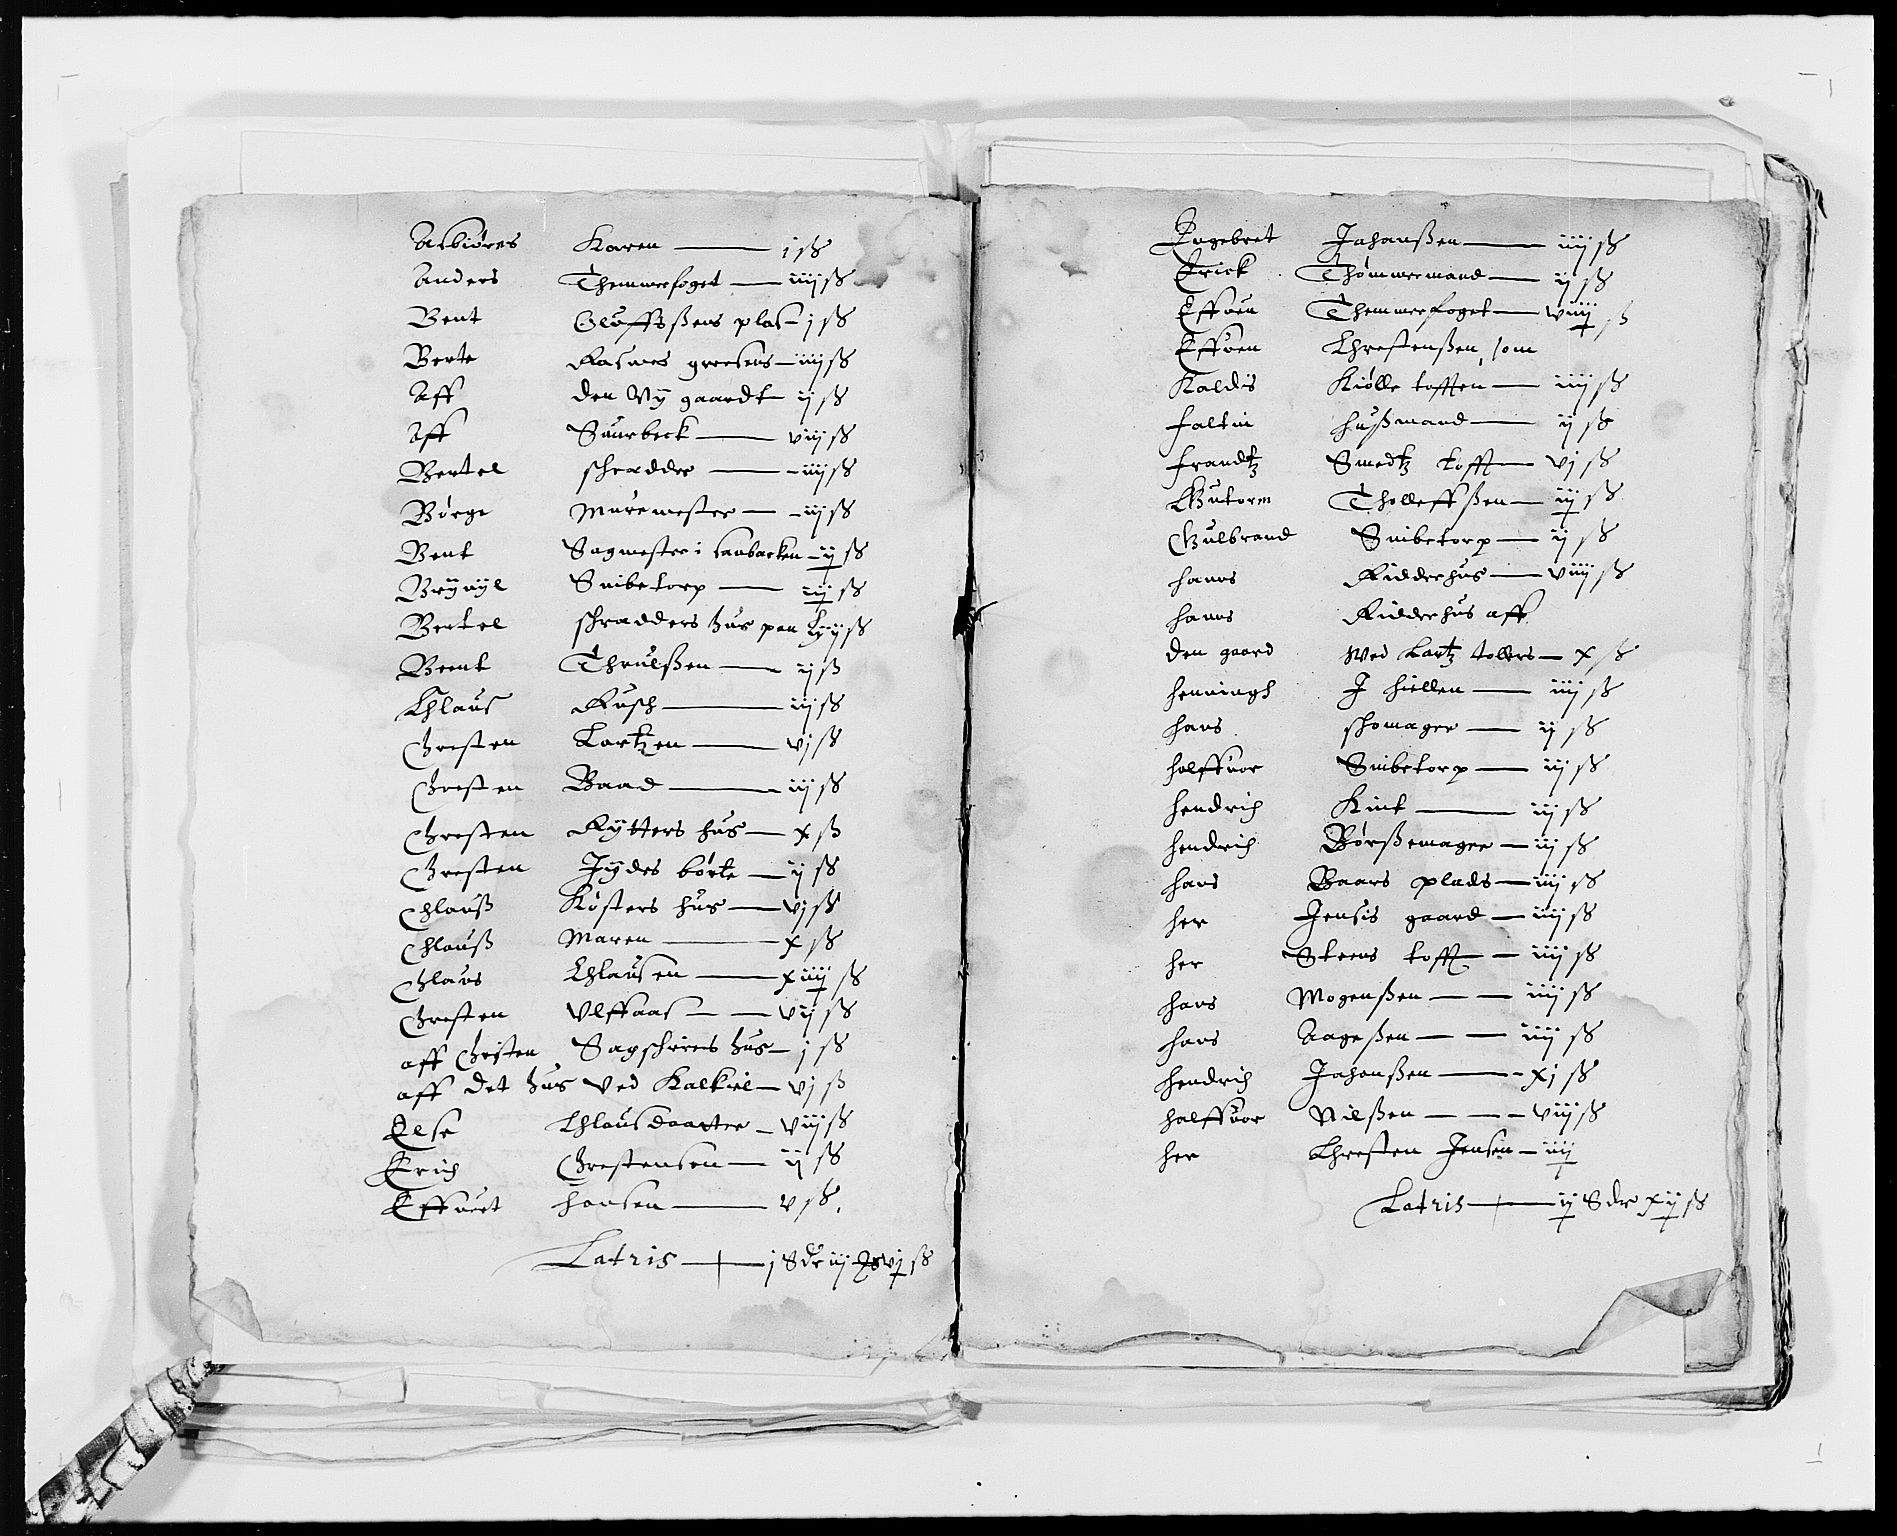 Asbiørns Karen — j ß
Anders Themmerfoget — iiij ß
Bent Oluffsßens plas — j ß
Berte Rasmus greesens — iiij ß
Aff den Ny gaardt — ij ß
Aff Suurbeck — viij ß
Bertel schradder — iiij ß
Børge Muremester — iij ß
Bent Sagmester i sanbacken — ij ß
Brynyl Snibetorp — iij ß
Bertel schradders hus paa ß
Bernt Thrulßen — ij ß
Chlaus Rusch — iij ß
Chresten Lartzen — vj ß
Chresten Baad — iij ß
Chresten Rytters hus — x ß
Chresten Jydes børte — ij ß
Chlauß Kósters hus — vj ß
Chlauß Maren — x ß
Chlaus Chlausen — xiiij ß
Chresten Ulffaas — vij ß
aff Christen Sagschriers hus — j ß
aff det hus ved Kalkiel — vj ß
Else Chlausdaatter — viij ß
Erich Chrestensen — ij ß
Effuert Hansen — v ß.
Latris — j Sdr iij vj ß
Engebret Johanßen — iiij ß
Erick Thømmermand — ij ß
Effuen Themmerfoget — viiij ß
Effuen Chrestenßen, som
Kaldis Kiølle tofften — iiij ß
Faltin Hußmand — ij ß
Frandtz Smedtz tofft — vj ß
Guttorm Tholleffßen — iij ß
Gulbrand Snibetorp — ij ß
Hans Ridderhus — viiij ß
Hans Ridderhus aff
den gaard Wed Lartz tollers — x ß
Henningh J Hiellen — iiij ß
Hans schomager — ij ß
Halffuor Snibetorp — iij ß
Hendrich Kint — iij ß
Hendrich Børßemager — iij ß
Hans Baars plads — iiij ß
Her Jensis gaard — iiij ß
Her Steens tofft — iiij ß
Hans Mogenßen — iiij ß
Hans Aageßen — iiij ß
Hendrich Johanßen — xj ß
Halffuor Nilßen — viij ß
Her Chresten Jensen — iiij
Latris — ij Sdr xij ß